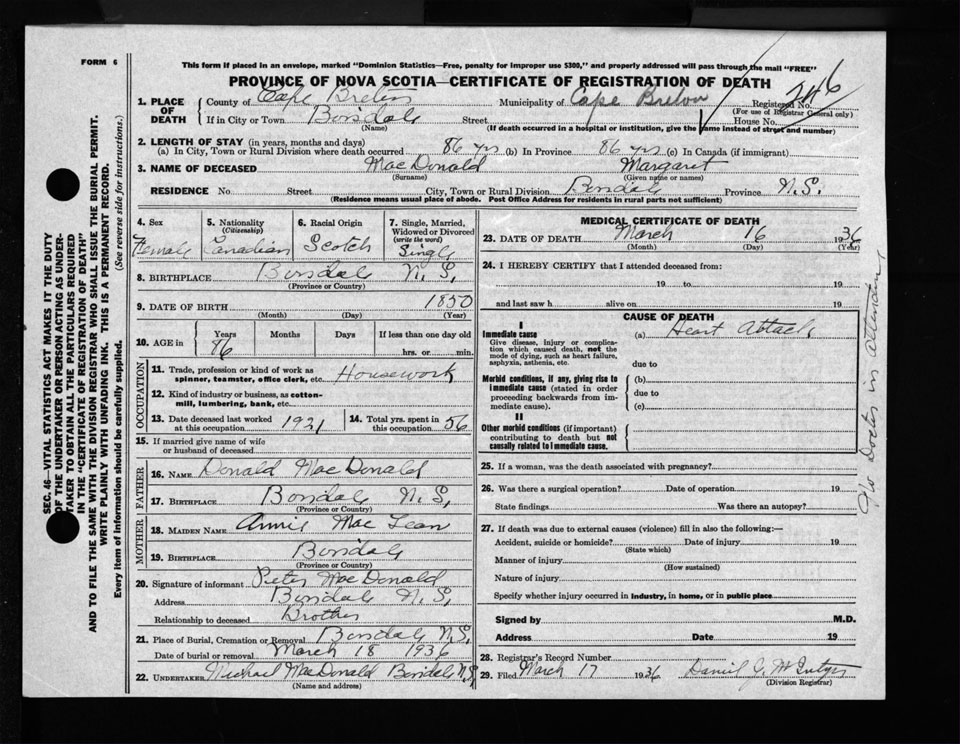 FORM 6
This form if placed in an envelope, marked "Dominion Statistics—Free, penalty for improper use $300," and properly addressed will pass through the mail "FREE"
PROVINCE OF NOVA SCOTIA—CERTIFICATE OF REGISTRATION OF DEATH
246
1. PLACE OF DEATH County of Cape Breton Municipality of Cape Breton Registered No.
(For use of Registrar General only)
If in City or Town Boisdale Street House No.
(Name) (If death occurred in a hospital or institution, give the name instead of street and number)
2. LENGTH OF STAY (in years, months and days)
(a) In City, Town or Rural Division where death occurred 86 yrs (b) In Province 86 yrs (c) In Canada (if immigrant)
3. NAME OF DECEASED MacDonald Margaret
(Surname) (Given name or names)
RESIDENCE No. Street City, Town or Rural Division Boisdale Province N.S.
(Residence means usual place of abode. Post Office Address for residents in rural parts not sufficient)
4. Sex Female
5. Nationality (Citizenship) Canadian
6. Racial Origin Scotch
7. Single, Married, Widowed or Divorced (write the word) Single
8. BIRTHPLACE Boisdale N.S.
(Province or Country)
9. DATE OF BIRTH 1850
(Month) (Day) (Year)
10. AGE in Years Months Days If less than one day old
86 hrs. or min.
OCCUPATION
11. Trade, profession or kind of work as spinner, teamster, office clerk, etc. Housework
12. Kind of industry or business, as cotton-mill, lumbering, bank, etc.
13. Date deceased last worked at this occupation 1931
14. Total yrs. spent in this occupation 56
15. If married give name of wife or husband of deceased
FATHER
16. NAME Donald MacDonald
17. BIRTHPLACE Boisdale N.S.
(Province or Country)
MOTHER
18. MAIDEN NAME Annie MacLean
19. BIRTHPLACE Boisdale
(Province or Country)
20. Signature of informant Peter MacDonald
Address Boisdale N.S.
Relationship to deceased Brother
21. Place of Burial, Cremation or Removal Boisdale N.S.
Date of burial or removal March 18 1936
22. UNDERTAKER Michael MacDonald Boisdale N.S.
(Name and address)
MEDICAL CERTIFICATE OF DEATH
23. DATE OF DEATH March 16 1936
(Month) (Day) (Year)
24. I HEREBY CERTIFY that I attended deceased from:
19 to 19
and last saw h alive on 19
CAUSE OF DEATH
I
Immediate cause (a) Heart Attack
Give disease, injury or complication which caused death, not the mode of dying, such as heart failure, asphyxia, asthenia, etc.
due to
Morbid conditions, if any, giving rise to immediate cause (stated in order proceeding backwards from immediate cause).
(b)
due to
(c)
II
Other morbid conditions (if important) contributing to death but not causally related to immediate cause.
25. If a woman, was the death associated with pregnancy?
26. Was there a surgical operation? Date of operation 19
State findings Was there an autopsy?
27. If death was due to external causes (violence) fill in also the following:—
Accident, suicide or homicide? Date of injury 19
(State which)
Manner of injury
(How sustained)
Nature of injury
Specify whether injury occurred in industry, in home, or in public place
Signed by M.D.
Address Date 19
28. Registrar's Record Number
29. Filed March 17 1936 Daniel J. McIntyre
(Division Registrar)
No Doctor in attendance
SEC. 46—VITAL STATISTICS ACT MAKES IT THE DUTY
OF THE UNDERTAKER OR PERSON ACTING AS UNDER-
TAKER TO OBTAIN ALL THE PARTICULARS REQUIRED
IN THE "CERTIFICATE OF REGISTRATION OF DEATH"
AND TO FILE THE SAME WITH THE DIVISION REGISTRAR WHO SHALL ISSUE THE BURIAL PERMIT.
WRITE PLAINLY WITH UNFADING INK. THIS IS A PERMANENT RECORD.
Every item of information should be carefully supplied. (See reverse side for instructions.)